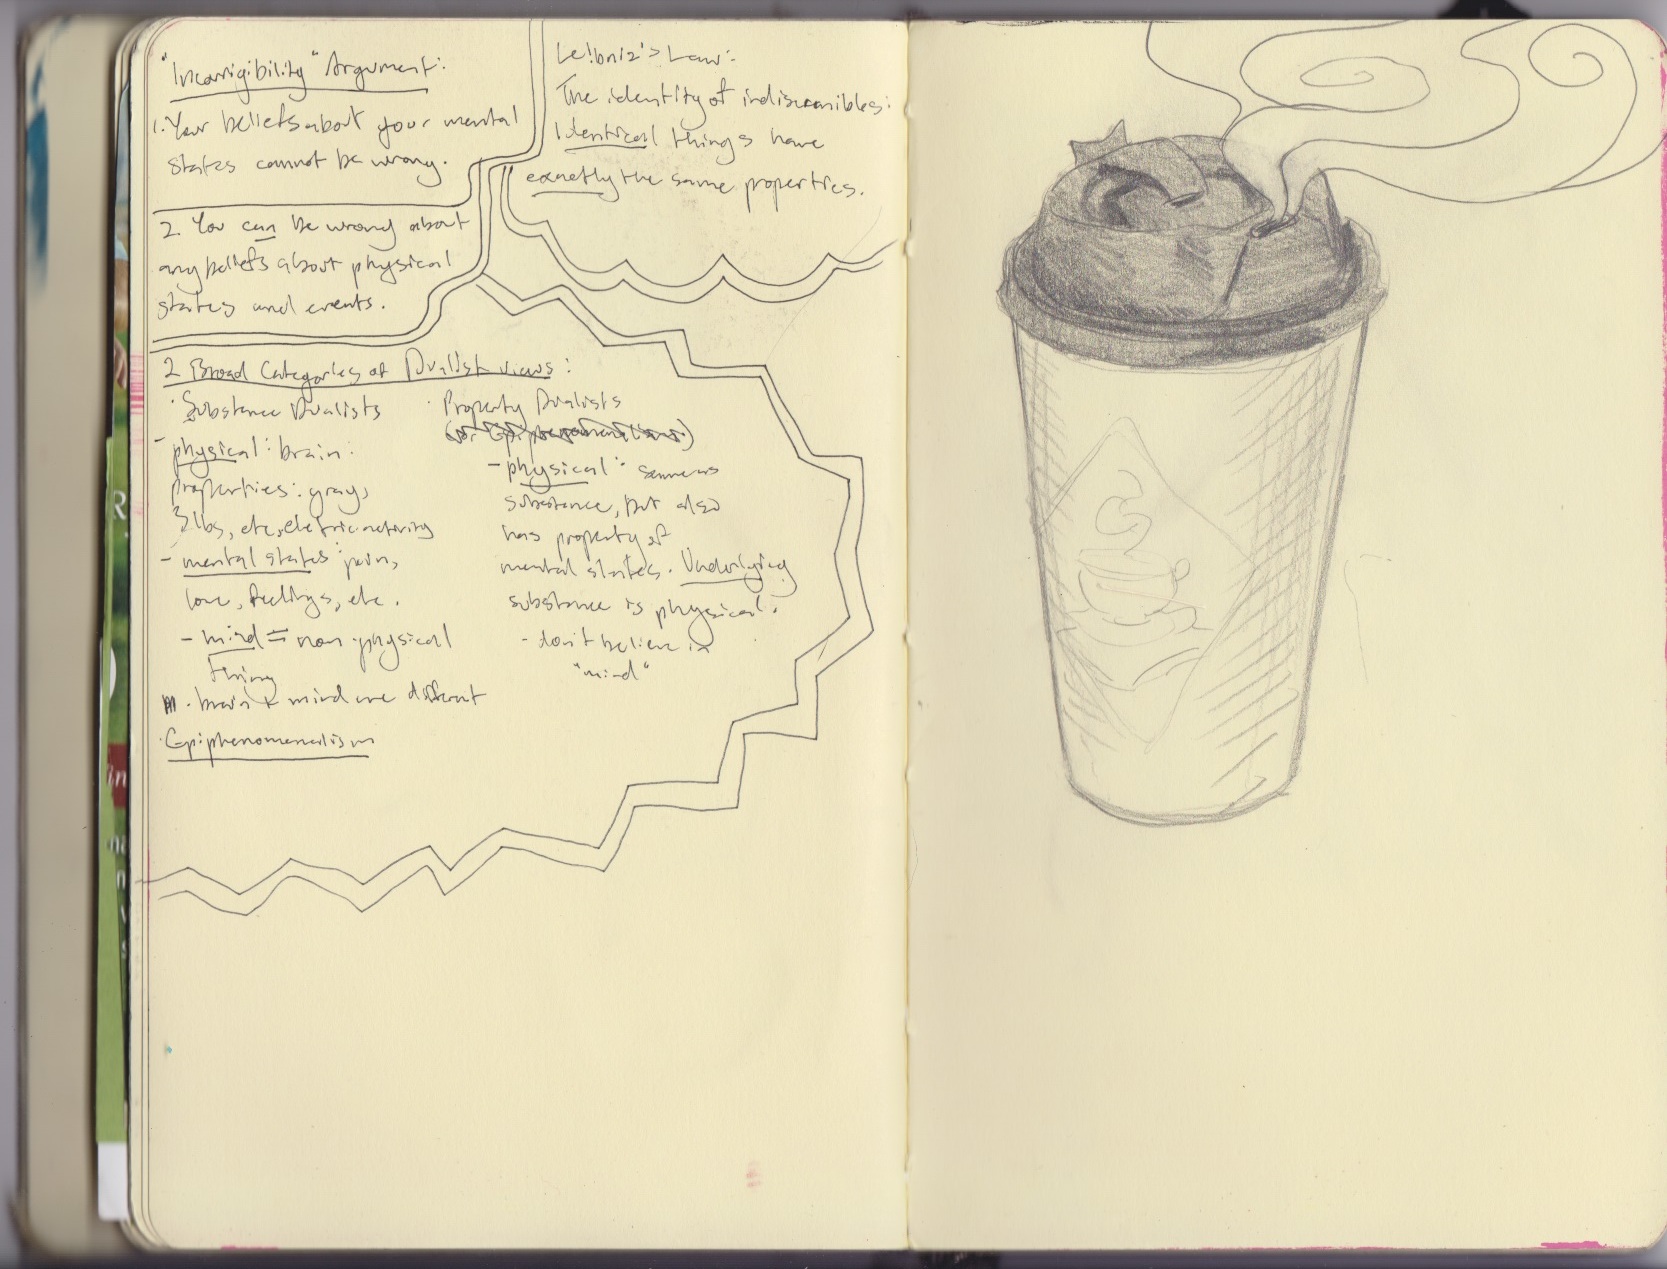 "Incorrigibility" Argument:
1. Your beliefs about your mental
states cannot be wrong.
2. You can be wrong about
any beliefs about physical
states and events.
Leibniz's Law:
The identity of indiscernibles:
Identical things have
exactly the same properties.
2 Broad Categories of Dualist views:
· Substance Dualists
- physical: brain.
properties: gray,
3 lbs, etc, electric activity
- mental states: pain,
love, feelings, etc.
- mind = non-physical
thing
· brain & mind are different
· Epiphenomenalism
· Property Dualists
(or Epiphenomenalism)
- physical:
substance, but also
has property of
mental states. Underlying
substance is physical.
- don't believe in
"mind"
R
in